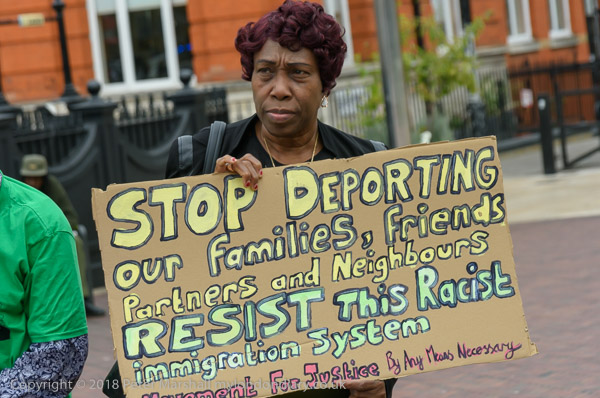 STOP DEPORTING
our Families, Friends
Partners and Neighbours
RESIST This Racist
immigration System
Movement For Justice By Any Means Necessary
Copyright © 2018 Peter Marshall mylondondiary.co.uk